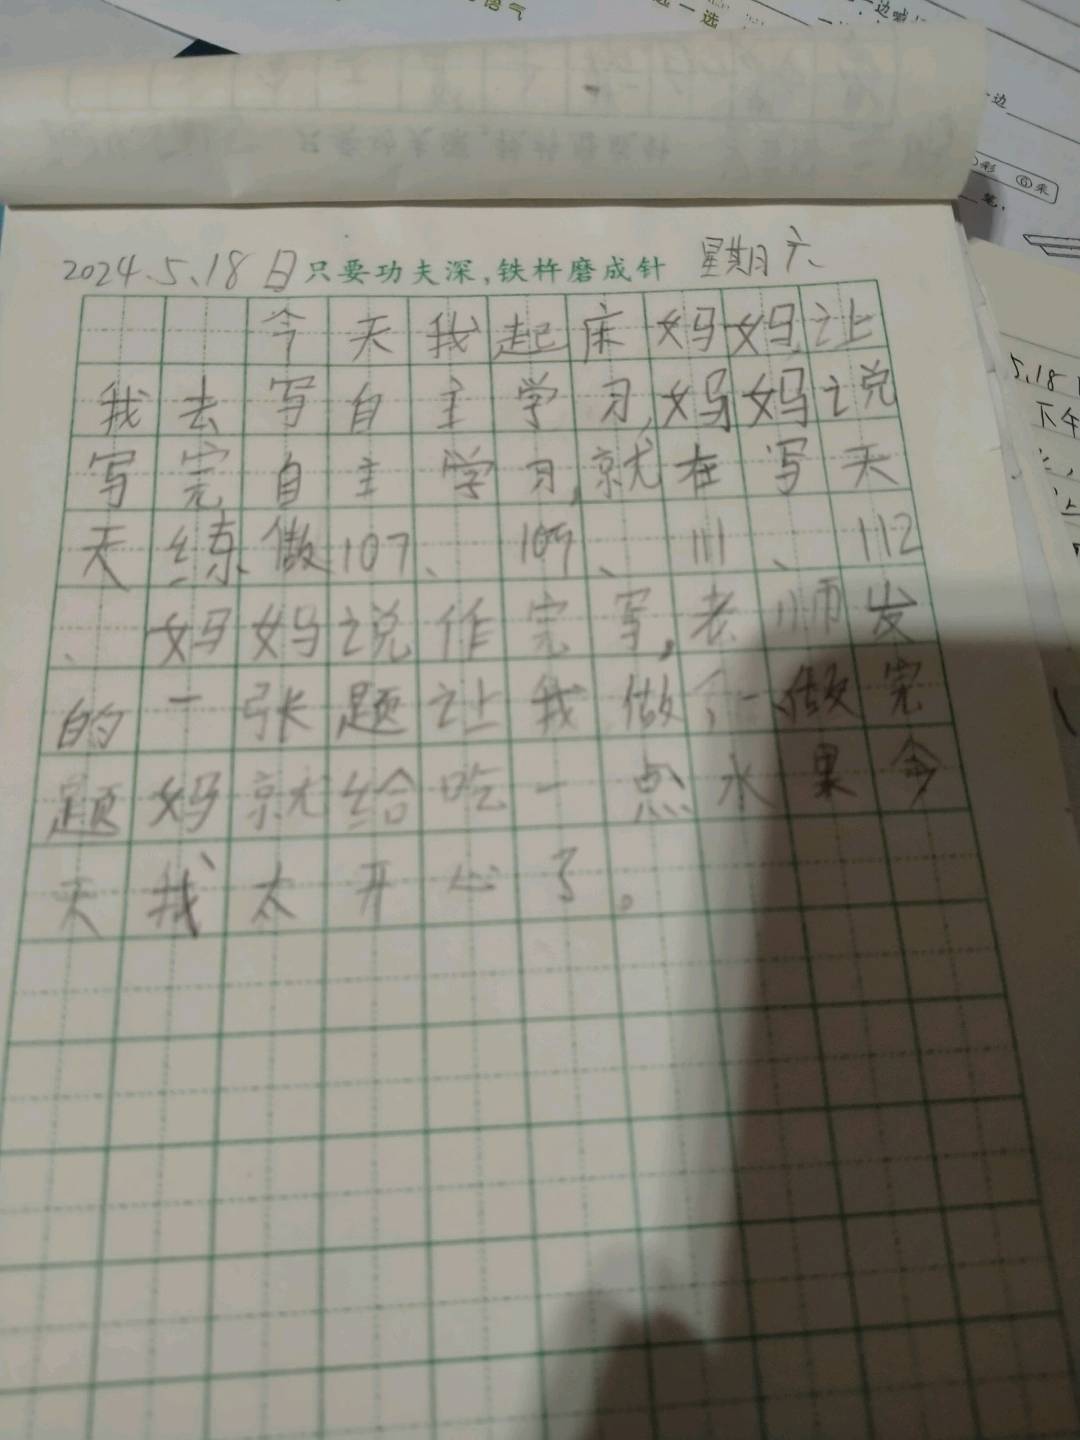 语气
选一选
一边
彩 ⑥来
笔,
2024.5.18日 只要功夫深,铁杵磨成针 星期六
今天我起床妈妈让
我去写自主学习,妈妈说
写完自主学习,就在写天
天练做107、109、111、112
、妈妈说作完写,老师发
的一张题让我做
做完
题妈就给吃一点水果今
天我太开心了。
5.18
下午